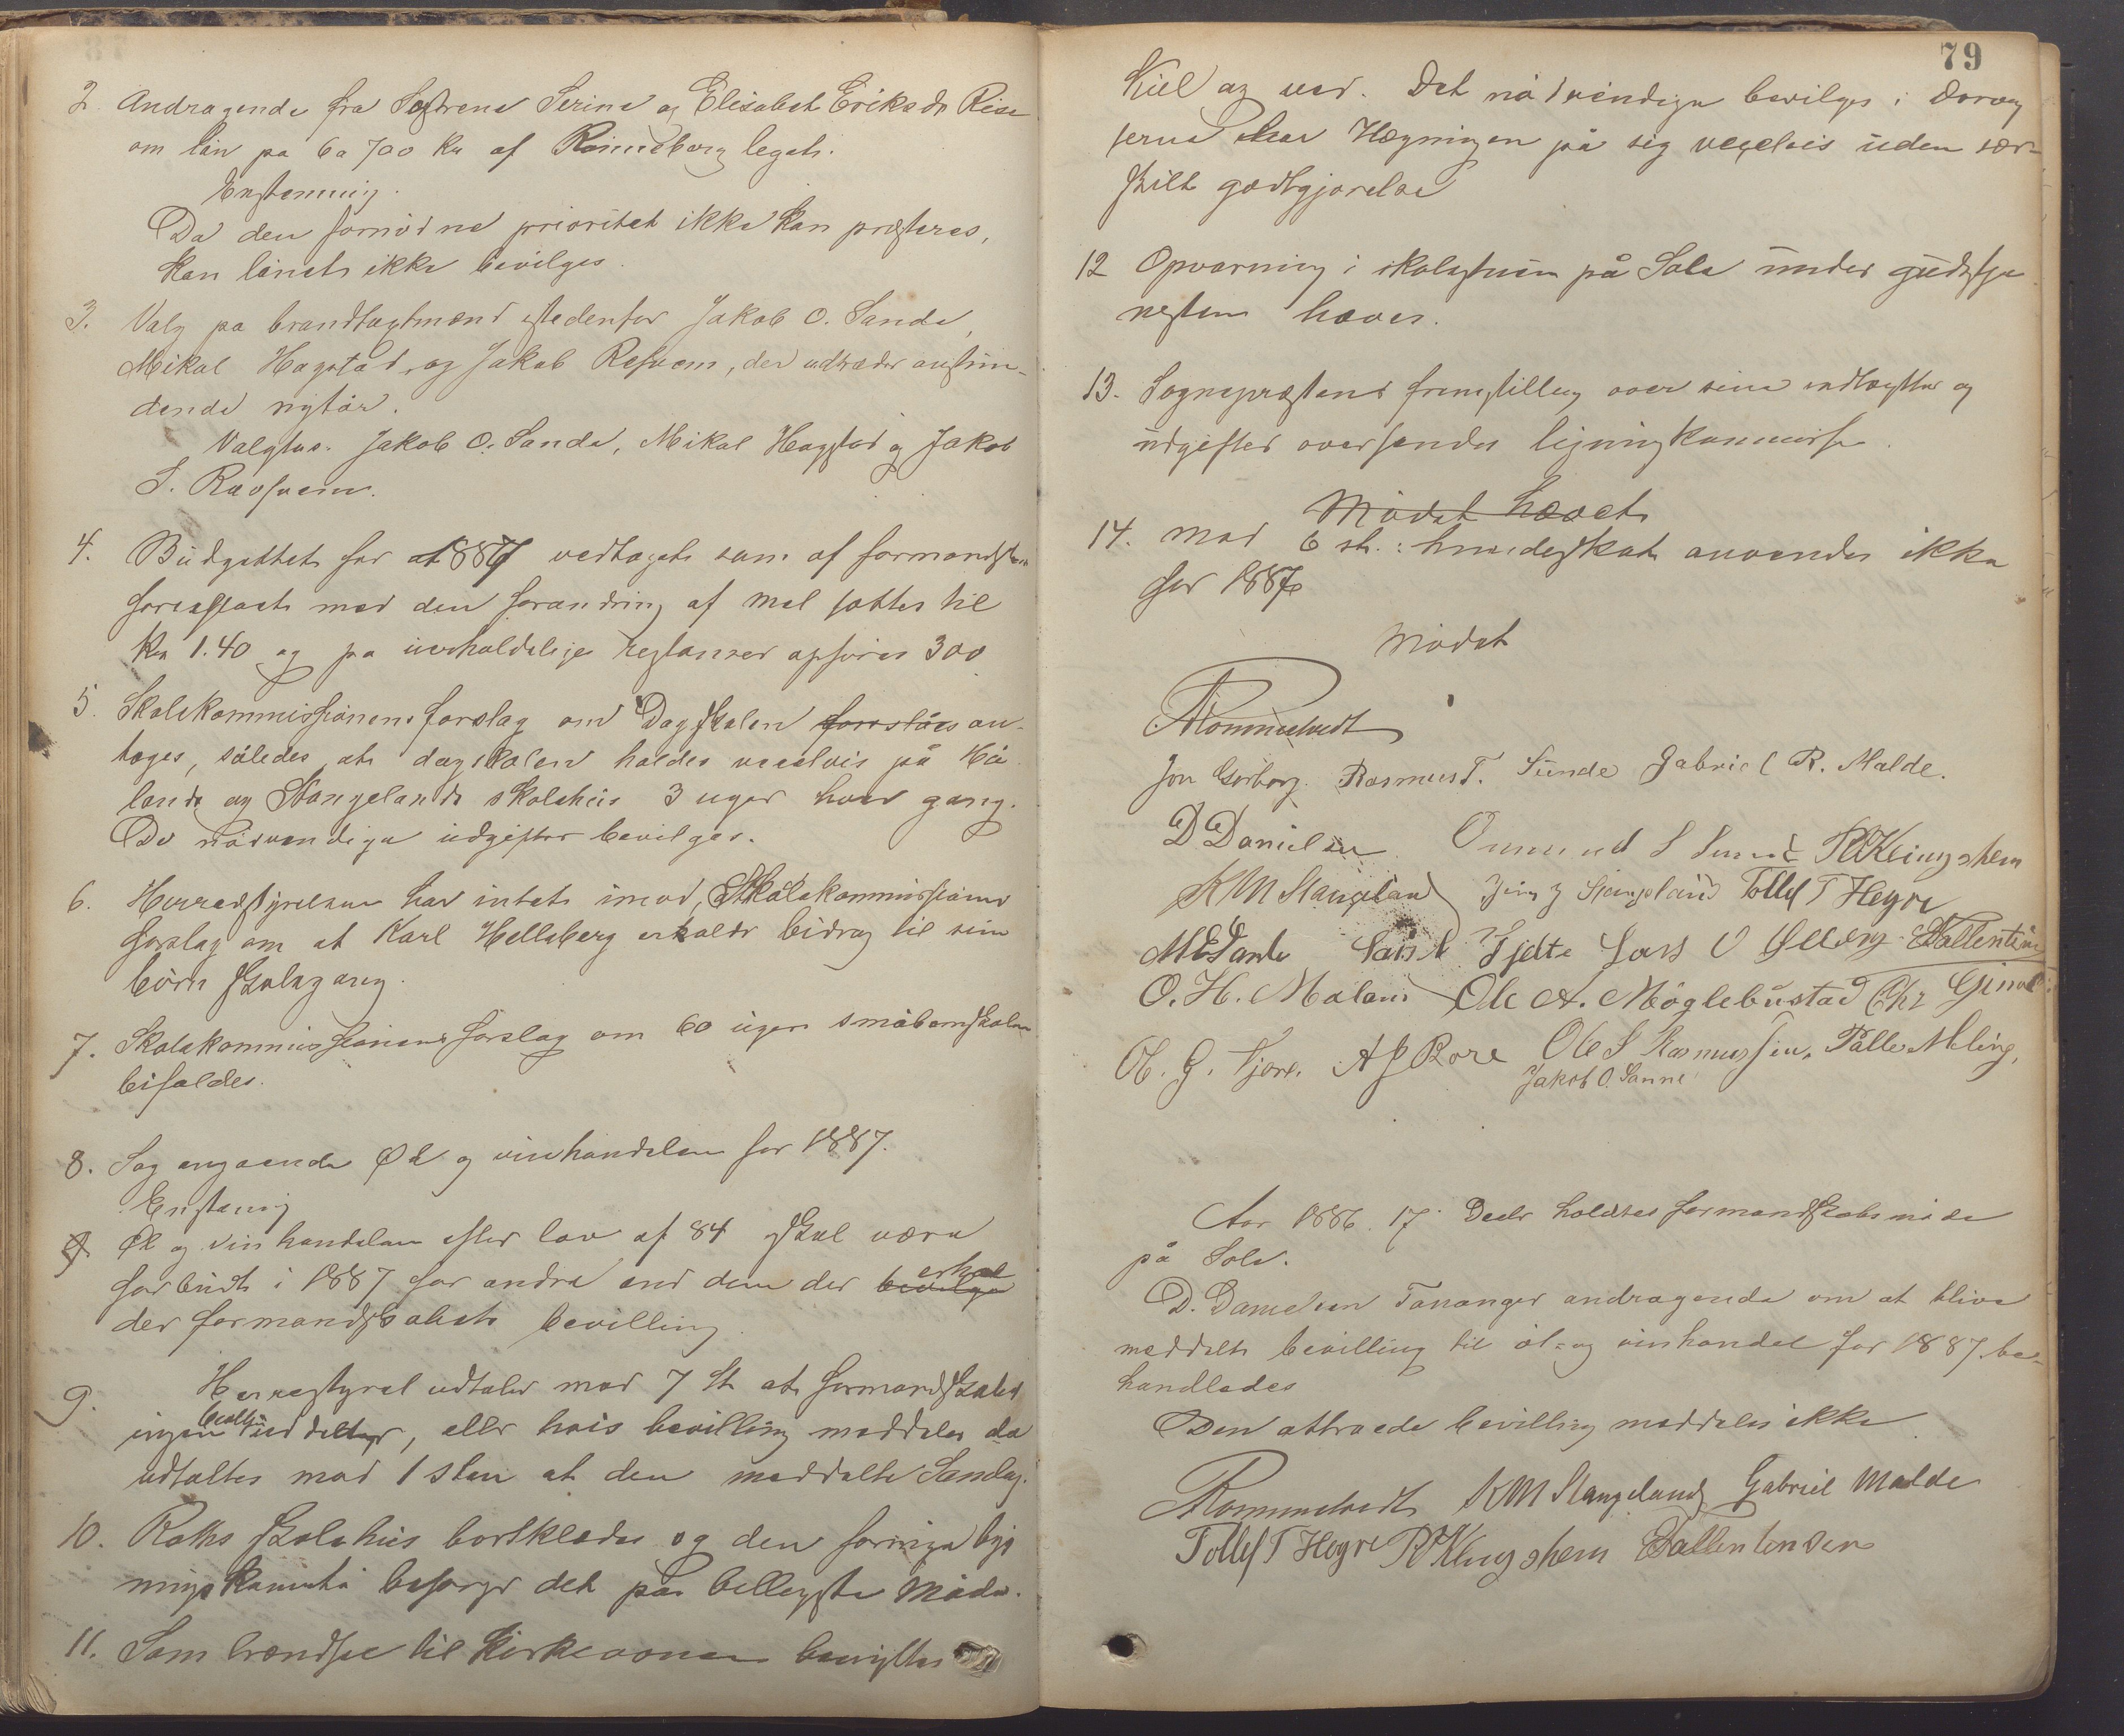 2. Andragende fra Søstrene Serine og Elisabet Eriksdt Risa
om lån på 6 a 700 Kr af Rennebergs legat.
Enstemmig.
Da den fornødne prioritet ikke kan præsteres,
kan lånet ikke bevilges.
3. Valg på brandtagtmænd istedenfor Jakob O. Sande,
Mikal Hagstad, og Jakob Refsvem, der udtræder anstun-
dende nytår.
Valgtes. Jakob O. Sande, Mikal Hagstad og Jakob
S. Ravsvem.
4. Budgettet for 1887 vedtaget som af formandsk
foreslaaet med den forandring af mel sættes til
Kr 1.40 og på uerholdelige restanser opføres 300
5. Skolekommissionens forslag om Dagskolen forslåes an-
tages, således at dagskolen holdes vexelvis på Hå
lands og Stangelands skolehus 3 uger hver gang.
De nødvendige udgifter bevilges.
6. Herredstyrelsen har intet imod, Skolekommissionens
forslag om at Karl Hellaberg erholdr bidrag til sine
børn skolegang.
7. Skolekommissionens forslag om 60 ugers småbørnskolen
bifaldes.
8. Sag angaaende Øl og vinhandelen for 1887.
Enstemig
9. Øl og vinhandelen efter lov af 84 skal være
forbudt i 1887 for andre end dem der bevilges erhol
der formandskabets bevilling
9. Herrestyrel udtaler mod 7 St at formandskabet
ingen bevilling uddeler, eller hvis bevilling meddeles da
udtaltes mod 1 stem at den meddelte Sandag.
10. Roths skolehus bortklædes og den forrige byg
ningskomite besørger det på billigste måde.
11. Som brændsel til Kirkeovnen benyttes
79
Kul og ved. Det nødvendige bevilges i Dorvog
terne har Hægningen på sig vexelvis uden sær-
skilt godtgjørelse
12 Opvarming i skolestuen på Sole under gudstje
nesten hæves.
13. Sognepræstens fremstilling over sine indtægter og
udgifter oversendes ligningkommisse.
Mødet hævet
14. mod 6 st. : hundeskat anvendes ikke
for 1887
Mødet
A Rommetvedt
Jon Gorborg. Rasmus T. Sunde Gabriel R. Malde.
D Danielsen Ommund S Sunde R Klingshem
K M Stangeland Jens J Stangeland Tollef T Hegre
M E Sande Lars Tjelte Lars O Ølberg E Vallentin
O. H. Meland Ole A. Møglebustad Chr Grinde
O. G. Fjore. A J Rore Ole S Rasmussen. Palle Meling,
Jakob O. Sanne
Aar 1886. 17 Decbr holdtes formandskabsmøde
på Sole.
D. Danielsen Tananger andragende om at blive
meddelt bevilling til øl- og vinhandel for 1887 be-
handledes
Den attraaede bevilling meddeles ikke
A Rommetvedt K M Stangeland Gabriel Malde
Tollef T Hegre R Klingshem E Vallentinsen